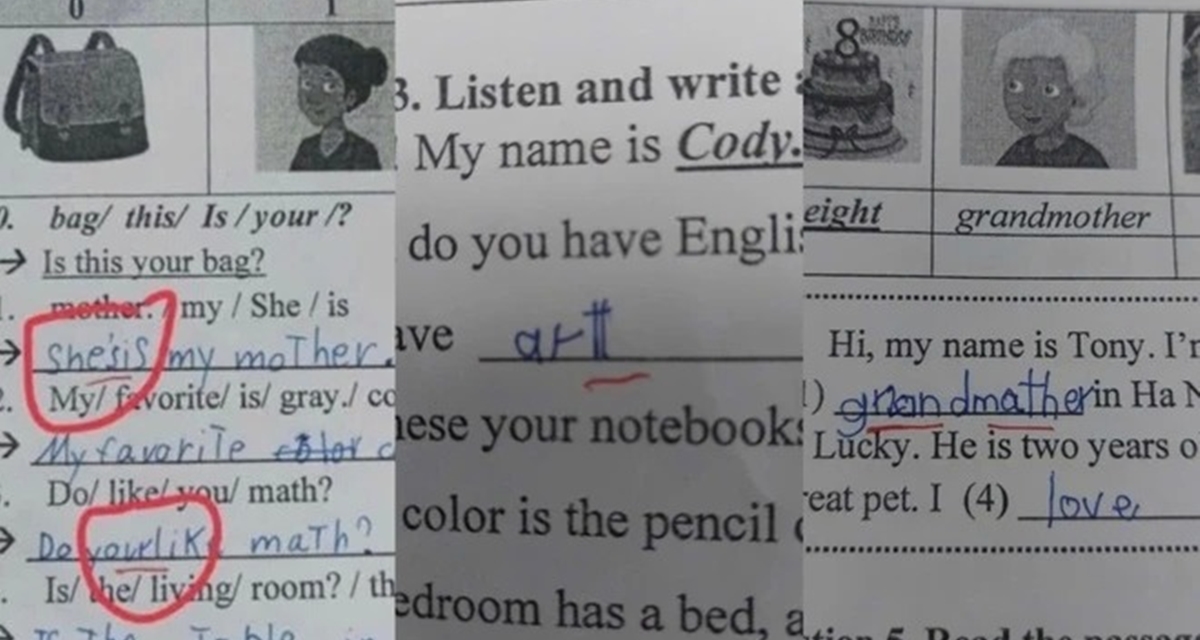 0
1
0. bag/ this/ Is / your /?
→ Is this your bag?
1. mother. / my / She / is
→ She'sis my moTher.
2. My/ favorite/ is/ gray./ co
→ My favoriTe color c
3. Do/ like/ you/ math?
→ Do yourlik maTh?
. Is/ the/ living/ room? / th
3. Listen and write a
My name is Cody.
do you have Englis
ave artt
hese your notebooks
color is the pencil c
edroom has a bed, a
8 HAPPY BIRTHDAY
eight grandmother
Hi, my name is Tony. I'm
1) grandmatherin Ha N
Lucky. He is two years o
reat pet. I (4) love
tion 5. Read the passag